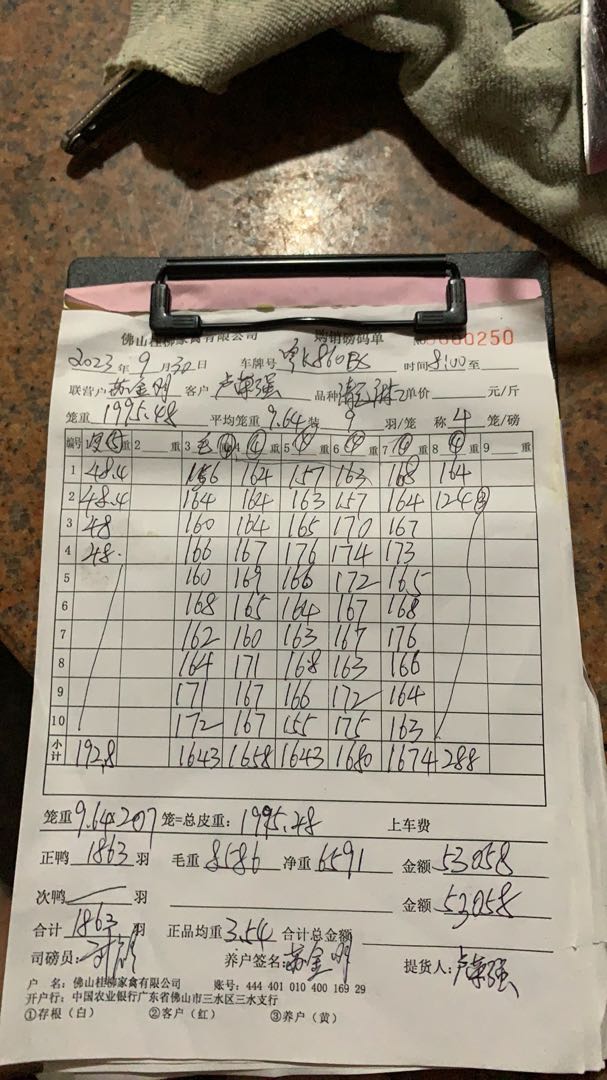 佛山桂柳家禽有限公司 购销磅码单 №0000250
2023年9月30日 车牌号 粤K860BS 时间8:00至
联营户 苏金明 客户 卢荣强 品种 单价 元/斤
笼重 1995.48 平均笼重 9.64 装 9 羽/笼 称 4 笼/磅
编号 皮⑤重 2 重 3毛④重 4④重 5④重 6④重 7④重 8④重 9 重
1 48.4 156 164 157 163 168 164
2 48.4 164 164 163 157 164 124③
3 48 160 164 165 170 167
4 48. 166 167 176 174 173
5 160 169 166 172 165
6 168 165 164 167 168
7 162 160 163 167 176
8 164 171 168 163 166
9 171 167 166 172 164
10 172 167 155 175 163
小计 192.8 1643 1658 1643 1680 1674 288
笼重 9.64×207 笼=总皮重: 1995.48 上车费
正鸭 1863 羽 毛重 8586 净重 6591 金额 53058
次鸭 羽 金额 53058
合计 1863 羽 正品均重 3.54 合计总金额
司磅员: 养户签名: 苏金明 提货人: 卢荣强
户 名: 佛山桂柳家禽有限公司 账号: 444 401 010 400 169 29
开户行: 中国农业银行广东省佛山市三水区三水支行
①存根(白) ②客户(红) ③养户(黄)